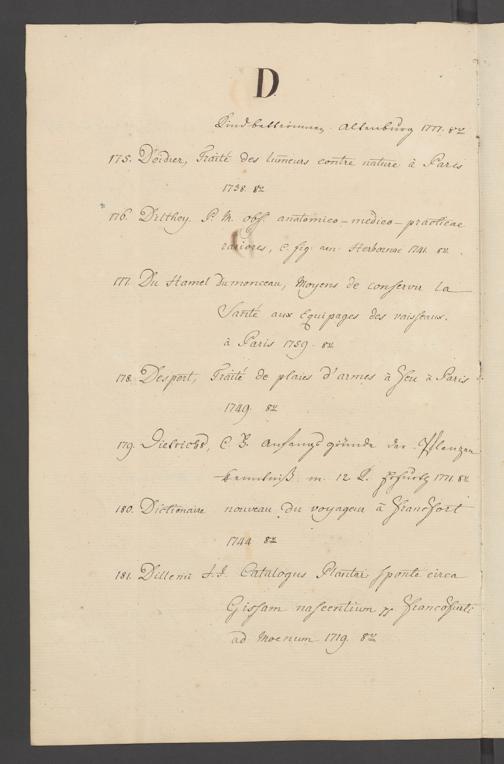 D.
Kindbetterinnen. Altenburg 1777. 8º
175. Deidier, Traité des tumeurs contre nature à Paris
1738. 8º
176. Dilthey. P. M. obs anatomico-medico-practicae
rariores, c. fig. aen. Herbornae 1741. 8º
177. Du Hamel Dumonceau, Moyens de conserver la
Santé aux Equipages des vaisseaux.
à Paris 1759. 8º
178. Desport, Traité de plaies d'armes à feu à Paris
1749 8º
179. Dietrichs, C. F. Anfangsgründe der Pflanzen
kenntniß. m. 12 K. Erfurth 1771. 8º
180. Dictionaire nouveau du voyageur à Francfort
1744 8º
181. Dillenii J. J. Catalogus Plantar sponte circa
Gissam nascentium Francofurti
ad Moenum 1719. 8º